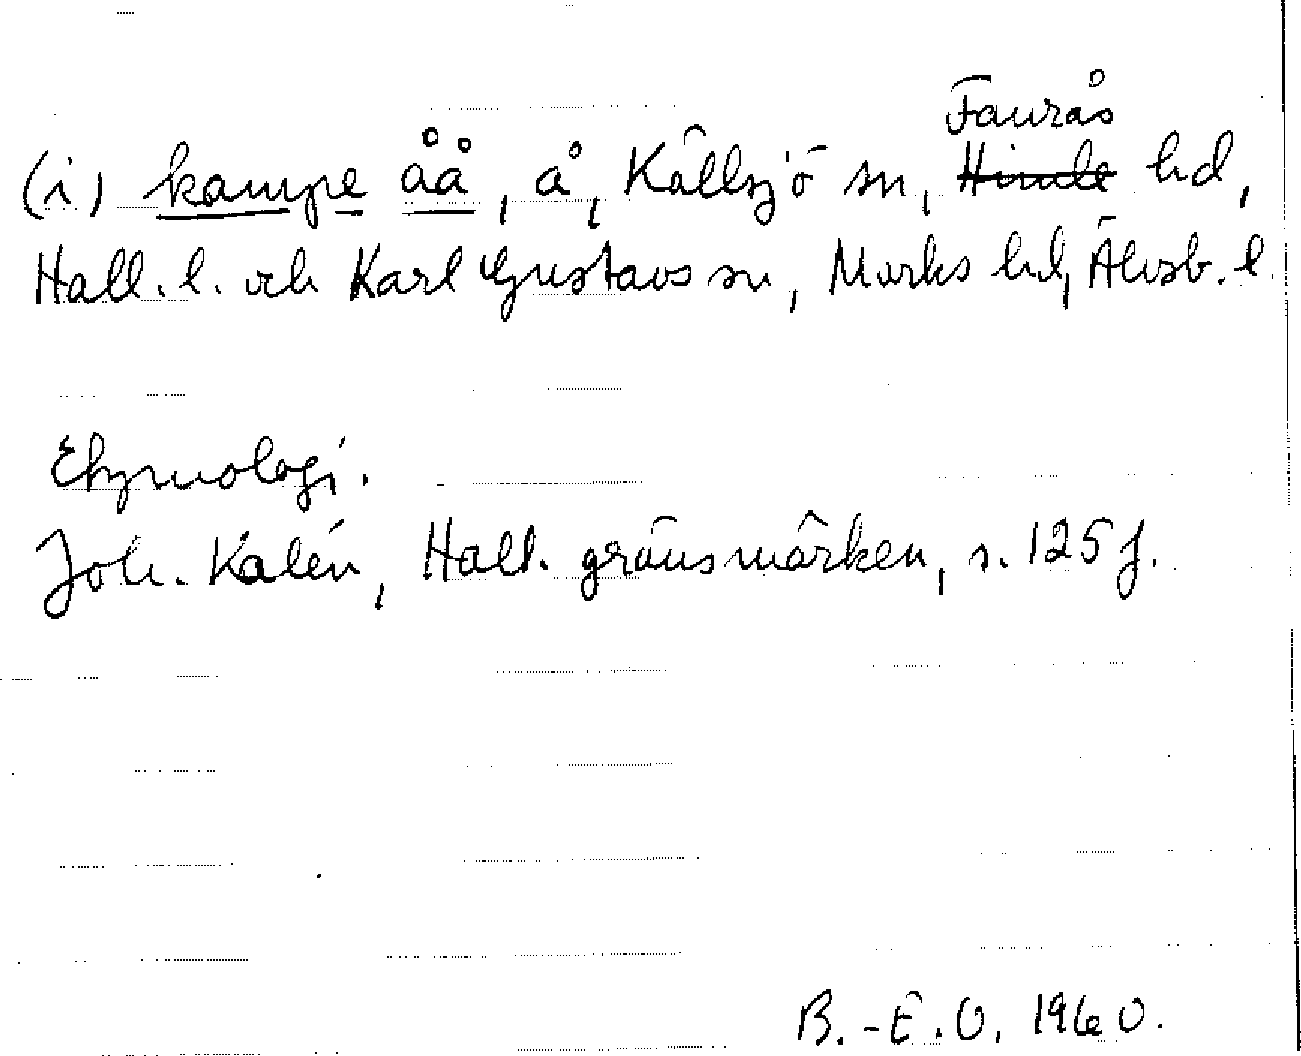 (i) kampe åå, å, Källsjö sn, Faurås hd,
Hall. l. och Karl Gustavs sn, Marks hd, Älvsb. l.
Etymologi.
Joh. Kalén, Hall. gränsmärken, s. 125 f.
B.-E. O. 1960.